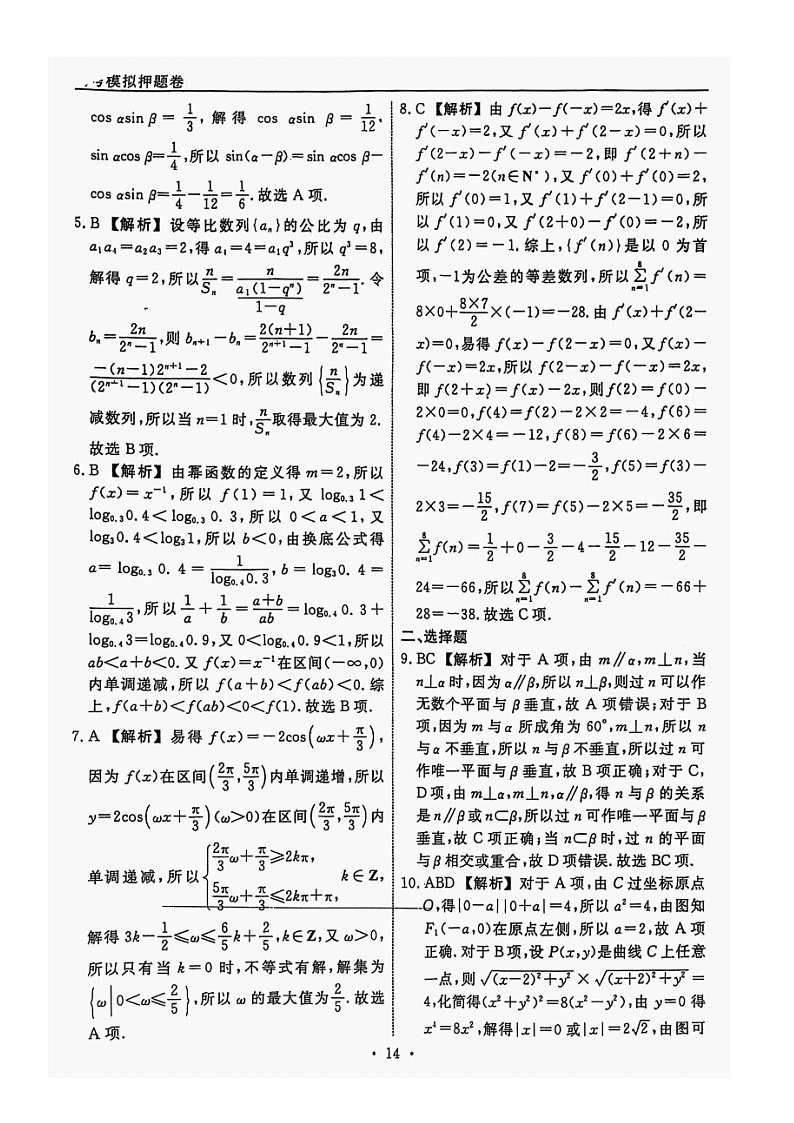 模拟押题卷
cos αsin β = 1/3, 解得 cos αsin β = 1/12,
sin αcos β=1/4,所以 sin(α−β)=sin αcos β−
cos αsin β=1/4−1/12=1/6.故选 A 项.
5. B 【解析】设等比数列{aₙ}的公比为 q,由
a₁a₄=a₂a₃=2,得 a₁=4=a₁q³,所以 q³=8,
解得 q=2,所以 n/Sₙ = n/(a₁(1−qⁿ)/(1−q)) = 2n/(2ⁿ−1).令
bₙ=2n/(2ⁿ−1),则 bₙ₊₁−bₙ=2(n+1)/(2ⁿ⁺¹−1)−2n/(2ⁿ−1)=
(−(n−1)2ⁿ⁺¹−2)/((2ⁿ⁺¹−1)(2ⁿ−1))<0,所以数列{n/Sₙ}为递
减数列,所以当 n=1 时,n/Sₙ取得最大值为 2.
故选 B 项.
6. B 【解析】由幂函数的定义得 m=2,所以
f(x)=x⁻¹,所以 f(1)=1,又 log₀.₃1<
log₀.₃0.4<log₀.₃0.3,所以 0<a<1,又
log₃0.4<log₃1,所以 b<0,由换底公式得
a=log₀.₃0.4=1/log₀.₄0.3,b=log₃0.4=
1/log₀.₄3,所以 1/a+1/b=(a+b)/ab=log₀.₄0.3+
log₀.₄3=log₀.₄0.9,又 0<log₀.₄0.9<1,所以
ab<a+b<0.又 f(x)=x⁻¹在区间(−∞,0)
内单调递减,所以 f(a+b)<f(ab)<0.综
上,f(a+b)<f(ab)<0<f(1).故选 B 项.
7. A 【解析】易得 f(x)=−2cos(ωx+π/3),
因为 f(x)在区间(2π/3,5π/3)内单调递增,所以
y=2cos(ωx+π/3)(ω>0)在区间(2π/3,5π/3)内
单调递减,所以{2π/3 ω+π/3≥2kπ, 5π/3 ω+π/3≤2kπ+π, k∈Z,
解得 3k−1/2≤ω≤6/5 k+2/5,k∈Z,又 ω>0,
所以只有当 k=0 时,不等式有解,解集为
{ω|0<ω≤2/5},所以 ω 的最大值为2/5.故选
A 项.
8. C 【解析】由 f(x)−f(−x)=2x,得 f′(x)+
f′(−x)=2,又 f′(x)+f′(2−x)=0,所以
f′(2−x)−f′(−x)=−2,即 f′(2+n)−
f′(n)=−2(n∈N*),又 f′(0)+f′(0)=2,
所以 f′(0)=1,又 f′(1)+f′(2−1)=0,所
以 f′(1)=0,又 f′(2+0)−f′(0)=−2,所
以 f′(2)=−1.综上,{f′(n)}是以 0 为首
项,−1为公差的等差数列,所以 8∑n=1 f′(n)=
8×0+(8×7)/2×(−1)=−28.由 f′(x)+f′(2−
x)=0,易得 f(x)−f(2−x)=0,又 f(x)−
f(−x)=2x,所以 f(2−x)−f(−x)=2x,
即 f(2+x)=f(x)−2x,则f(2)=f(0)−
2×0=0,f(4)=f(2)−2×2=−4,f(6)=
f(4)−2×4=−12,f(8)=f(6)−2×6=
−24,f(3)=f(1)−2=−3/2,f(5)=f(3)−
2×3=−15/2,f(7)=f(5)−2×5=−35/2,即
8∑n=1 f(n)=1/2+0−3/2−4−15/2−12−35/2−
24=−66,所以 8∑n=1 f(n)−8∑n=1 f′(n)=−66+
28=−38.故选 C 项.
二、选择题
9. BC 【解析】对于 A 项,由 m∥α,m⊥n,当
n⊥α时,因为α∥β,所以 n⊥β,则过 n 可以作
无数个平面与β垂直,故 A 项错误;对于 B
项,因为 m 与α所成角为 60°,m⊥n,所以 n
与α不垂直,所以 n 与β不垂直,所以过 n 可
作唯一平面与β垂直,故 B 项正确;对于 C,
D项,由 m⊥α,m⊥n,α∥β,得 n 与β的关系
是n∥β或n⊂β,所以过 n 可作唯一平面与β
垂直,故 C 项正确;当 n⊂β时,过 n 的平面
与β相交或重合,故 D 项错误.故选 BC 项.
10. ABD 【解析】对于 A 项,由 C 过坐标原点
O,得|0−a||0+a|=4,所以 a²=4,由图知
F₁(−a,0)在原点左侧,所以 a=2,故 A 项
正确.对于 B项,设 P(x,y)是曲线 C 上任意
一点,则 √((x−2)²+y²) × √((x+2)²+y²) =
4,化简得(x²+y²)²=8(x²−y²),由 y=0 得
x⁴=8x²,解得|x|=0 或|x|=2√2,由图可
· 14 ·